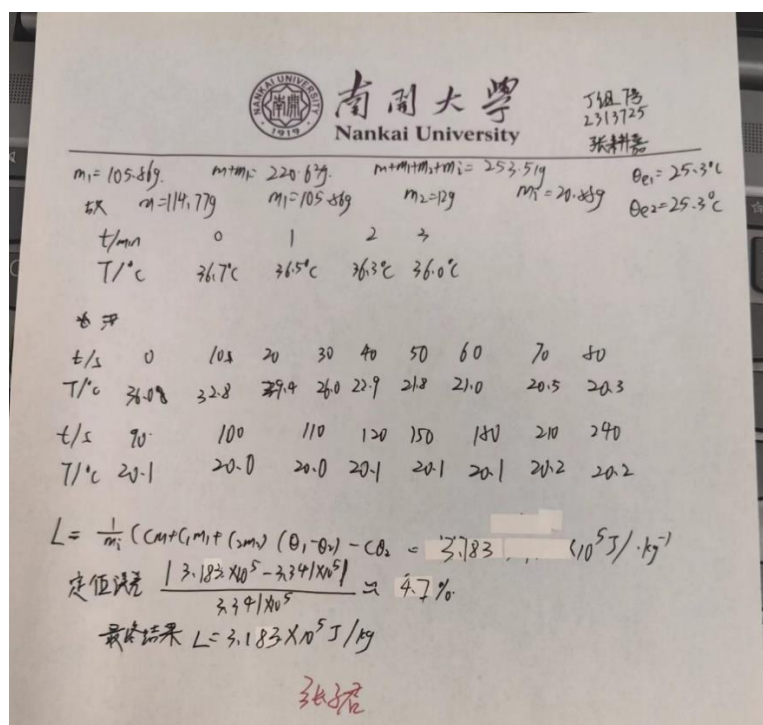 NANKAI UNIVERSITY
1919
南開大學
Nankai University
2313725
m₁=105.86g. m+m₁= 220.63g. m+m₁+m₂+mᵢ= 253.51g θe1= 25.3℃
m=114.77g m₁=105.86g m₂=12g mᵢ=20.88g θe2=25.3℃
t/min 0 1 2 3
T/℃ 36.7℃ 36.5℃ 36.3℃ 36.0℃
t/s 0 10s 20 30 40 50 60 70 80
T/℃ 36.0 32.8 29.4 26.0 22.9 21.8 21.0 20.5 20.3
t/s 90 100 110 120 150 180 210 240
T/℃ 20.1 20.0 20.0 20.1 20.1 20.1 20.2 20.2
L= 1/mᵢ (cm+c₁m₁+c₂m₂) (θ₁-θ₂) - cθ₂ = 3.783 ×10⁵J/·kg⁻¹
定值误差 |3.183×10⁵-3.341×10⁵| / 3.341×10⁵ ≈ 4.7%.
最终结果 L=3.183×10⁵J/kg